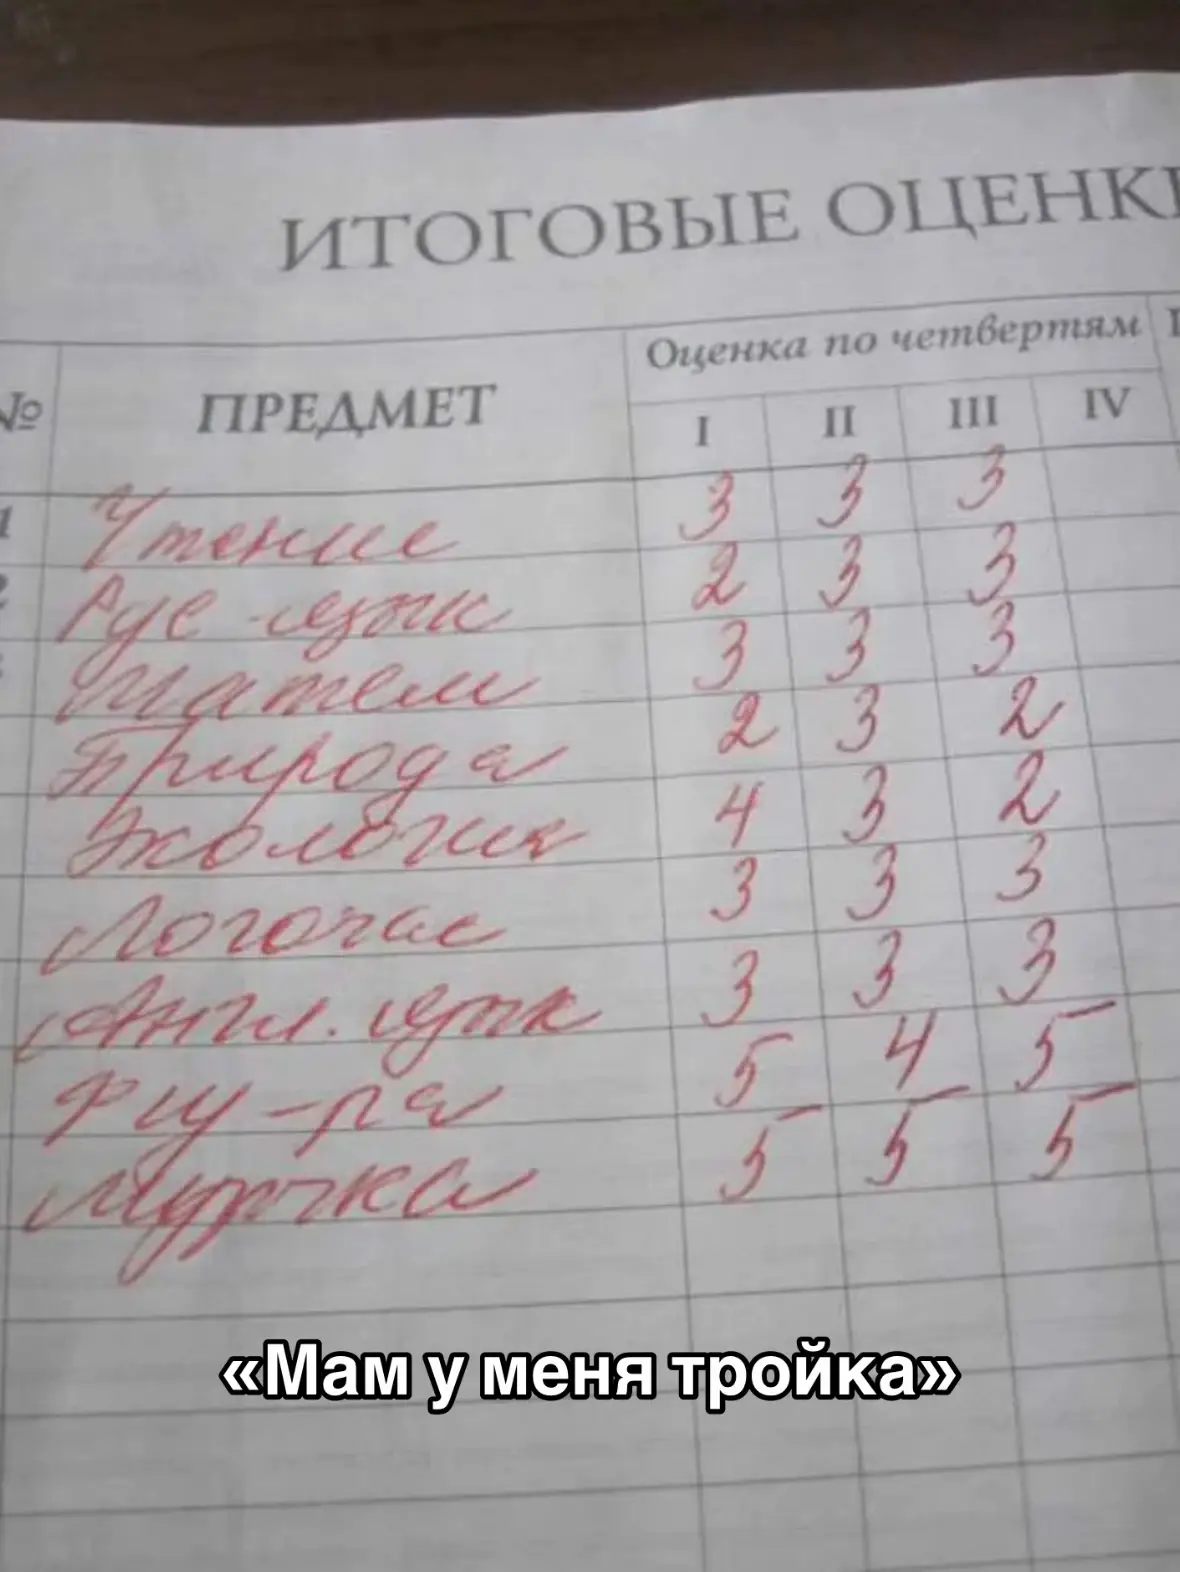 ИТОГОВЫЕ ОЦЕНКИ
№ ПРЕДМЕТ Оценка по четвертям
I II III IV
1 Чтение 3 3 3
2 Рус язык 2 3 3
Матем 3 3 3
Природа 2 3 2
Экология 4 3 2
Логочас 3 3 3
Англ. язык 3 3 3
Физ-ра 5 4 5
Музыка 5 5 5
«Мам у меня тройка»